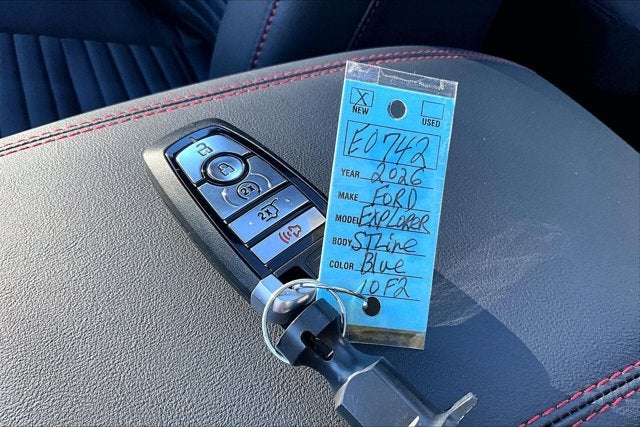 X
NEW USED
E0742
YEAR 2026
MAKE FORD
MODEL EXPLORER
BODY STLine
COLOR Blue
1 OF 2
2x
2x